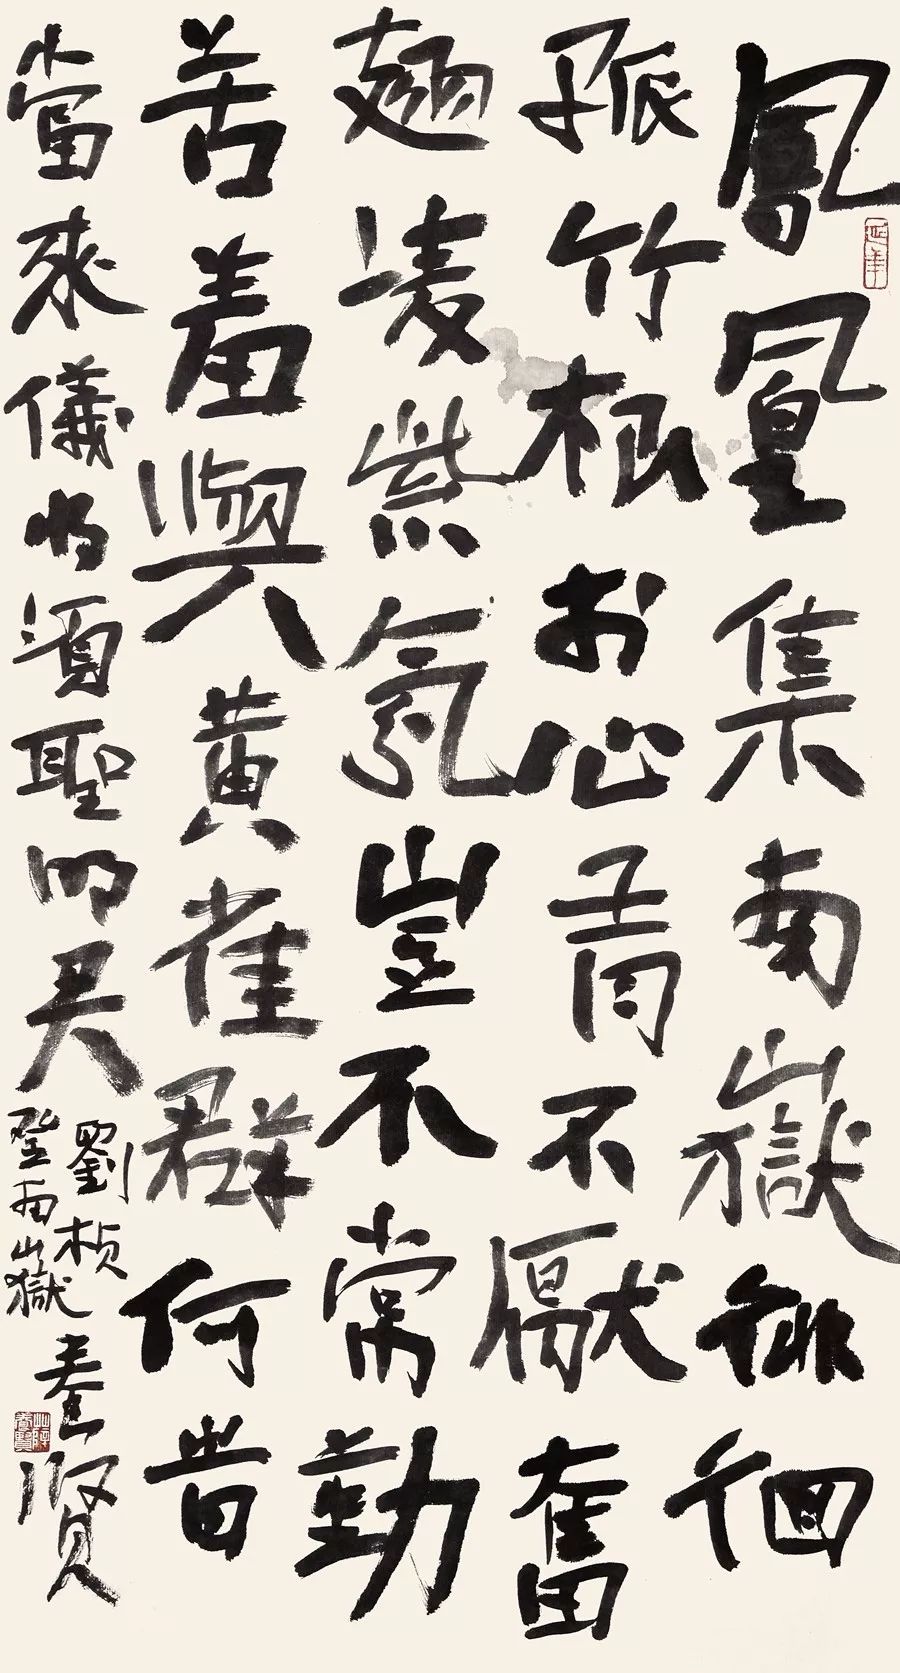 鳳凰集南嶽徘徊
孤竹根於心有不厭奮
翅凌紫氛豈不常勤
苦羞與黃雀群何旹
當來儀將須聖明君
劉楨
登南嶽
賢
延年